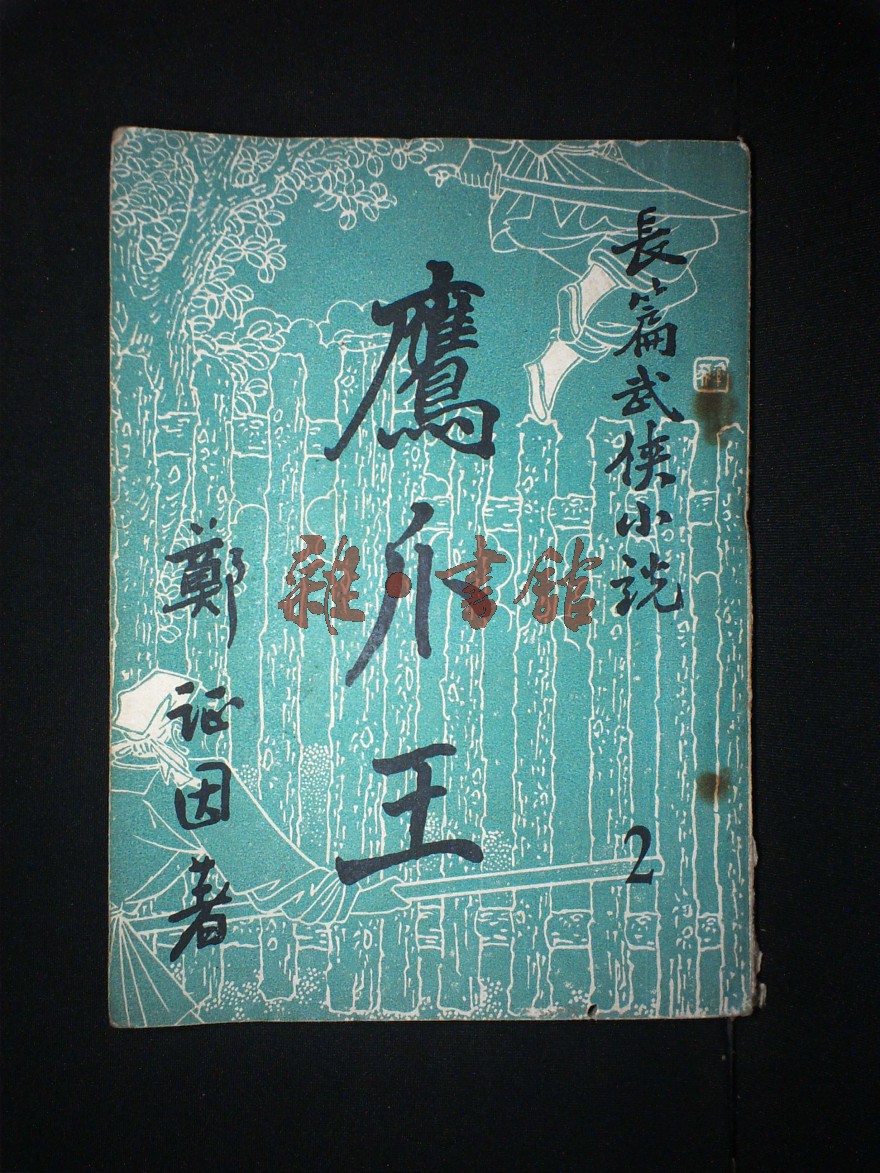 長篇武俠小説
2
鷹爪王
鄭証因著
雜·書館